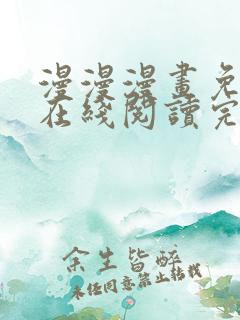 漫漫漫畫免
在綫閱讀完
余生皆醉
未经同意禁止转载